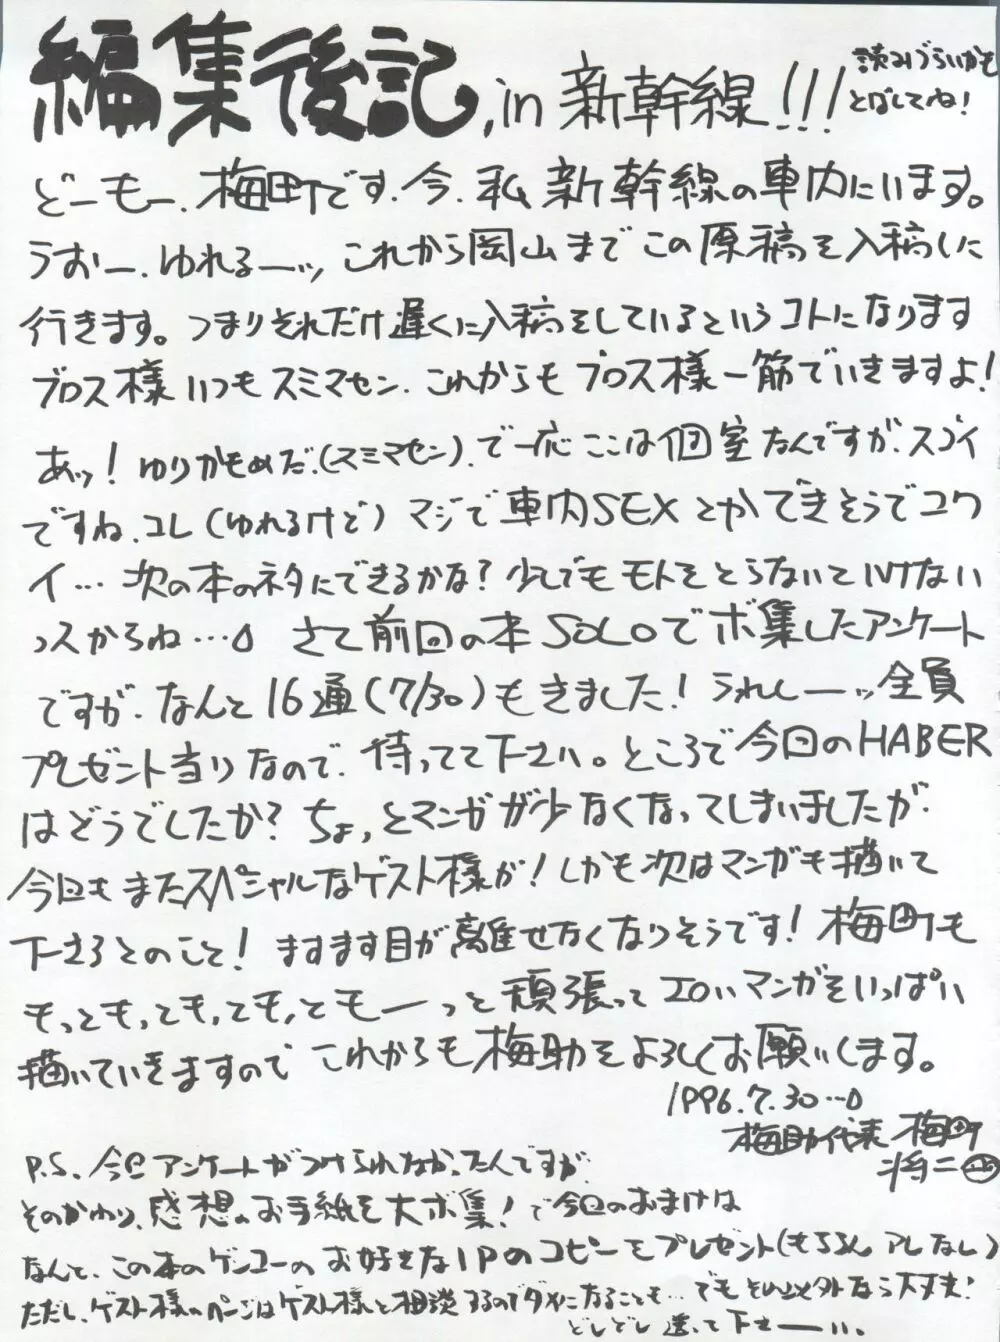 編集後記, in 新幹線!!!
読みづらいかも
とばしてね!
どーもー、梅町です。今、私新幹線の車内にいます。
うおー、ゆれるーッ、これから岡山までこの原稿を入稿しに
行きます。つまりそれだけ遅くに入稿をしているというコトになります
ブロス様いつもスミマセン。これからもブロス様一筋でいきますよ!
あッ!ゆりかもめだ。(スミマセン)。で一応ここは個室なんですが、スゴイ
ですね、コレ(ゆれるけど) マジで車内SEXとかできそうでコワ
イ… 次の本のネタにできるかな? 少しでもモトをとらないといけない
っスからね… さて前回の本SOLOでボ集したアンケート
ですが、なんと16通(7/30)もきました! うれしーッ全員
プレゼント当りなので、待ってて下さい。ところで今回のHABER
はどうでしたか? ちょっとマンガが少なくなってしまいましたが、
今回もまたスペシャルなゲスト様が! しかも次はマンガも描いて
下さるとのこと! ますます目が離せなくなりそうです! 梅町も
もっともっとも,ても,ともーっと頑張ってエロいマンガをいっぱい
描いていきますので これからも梅助をよろしくお願いします。
1996.7.30…
梅助代表 梅町
将二
P.S. 今回アンケートがつけられなかったんですが、
そのかわり、感想のお手紙を大ボ集! で今回のおまけは
なんと、この本のゲンコーのお好きな1Pのコピーをプレゼント(もちろん アレなし)
ただし、ゲスト様のページはゲスト様と相談するのでダメになることも… でもそれ以外なら大丈夫!
どしどし送って下さーい。